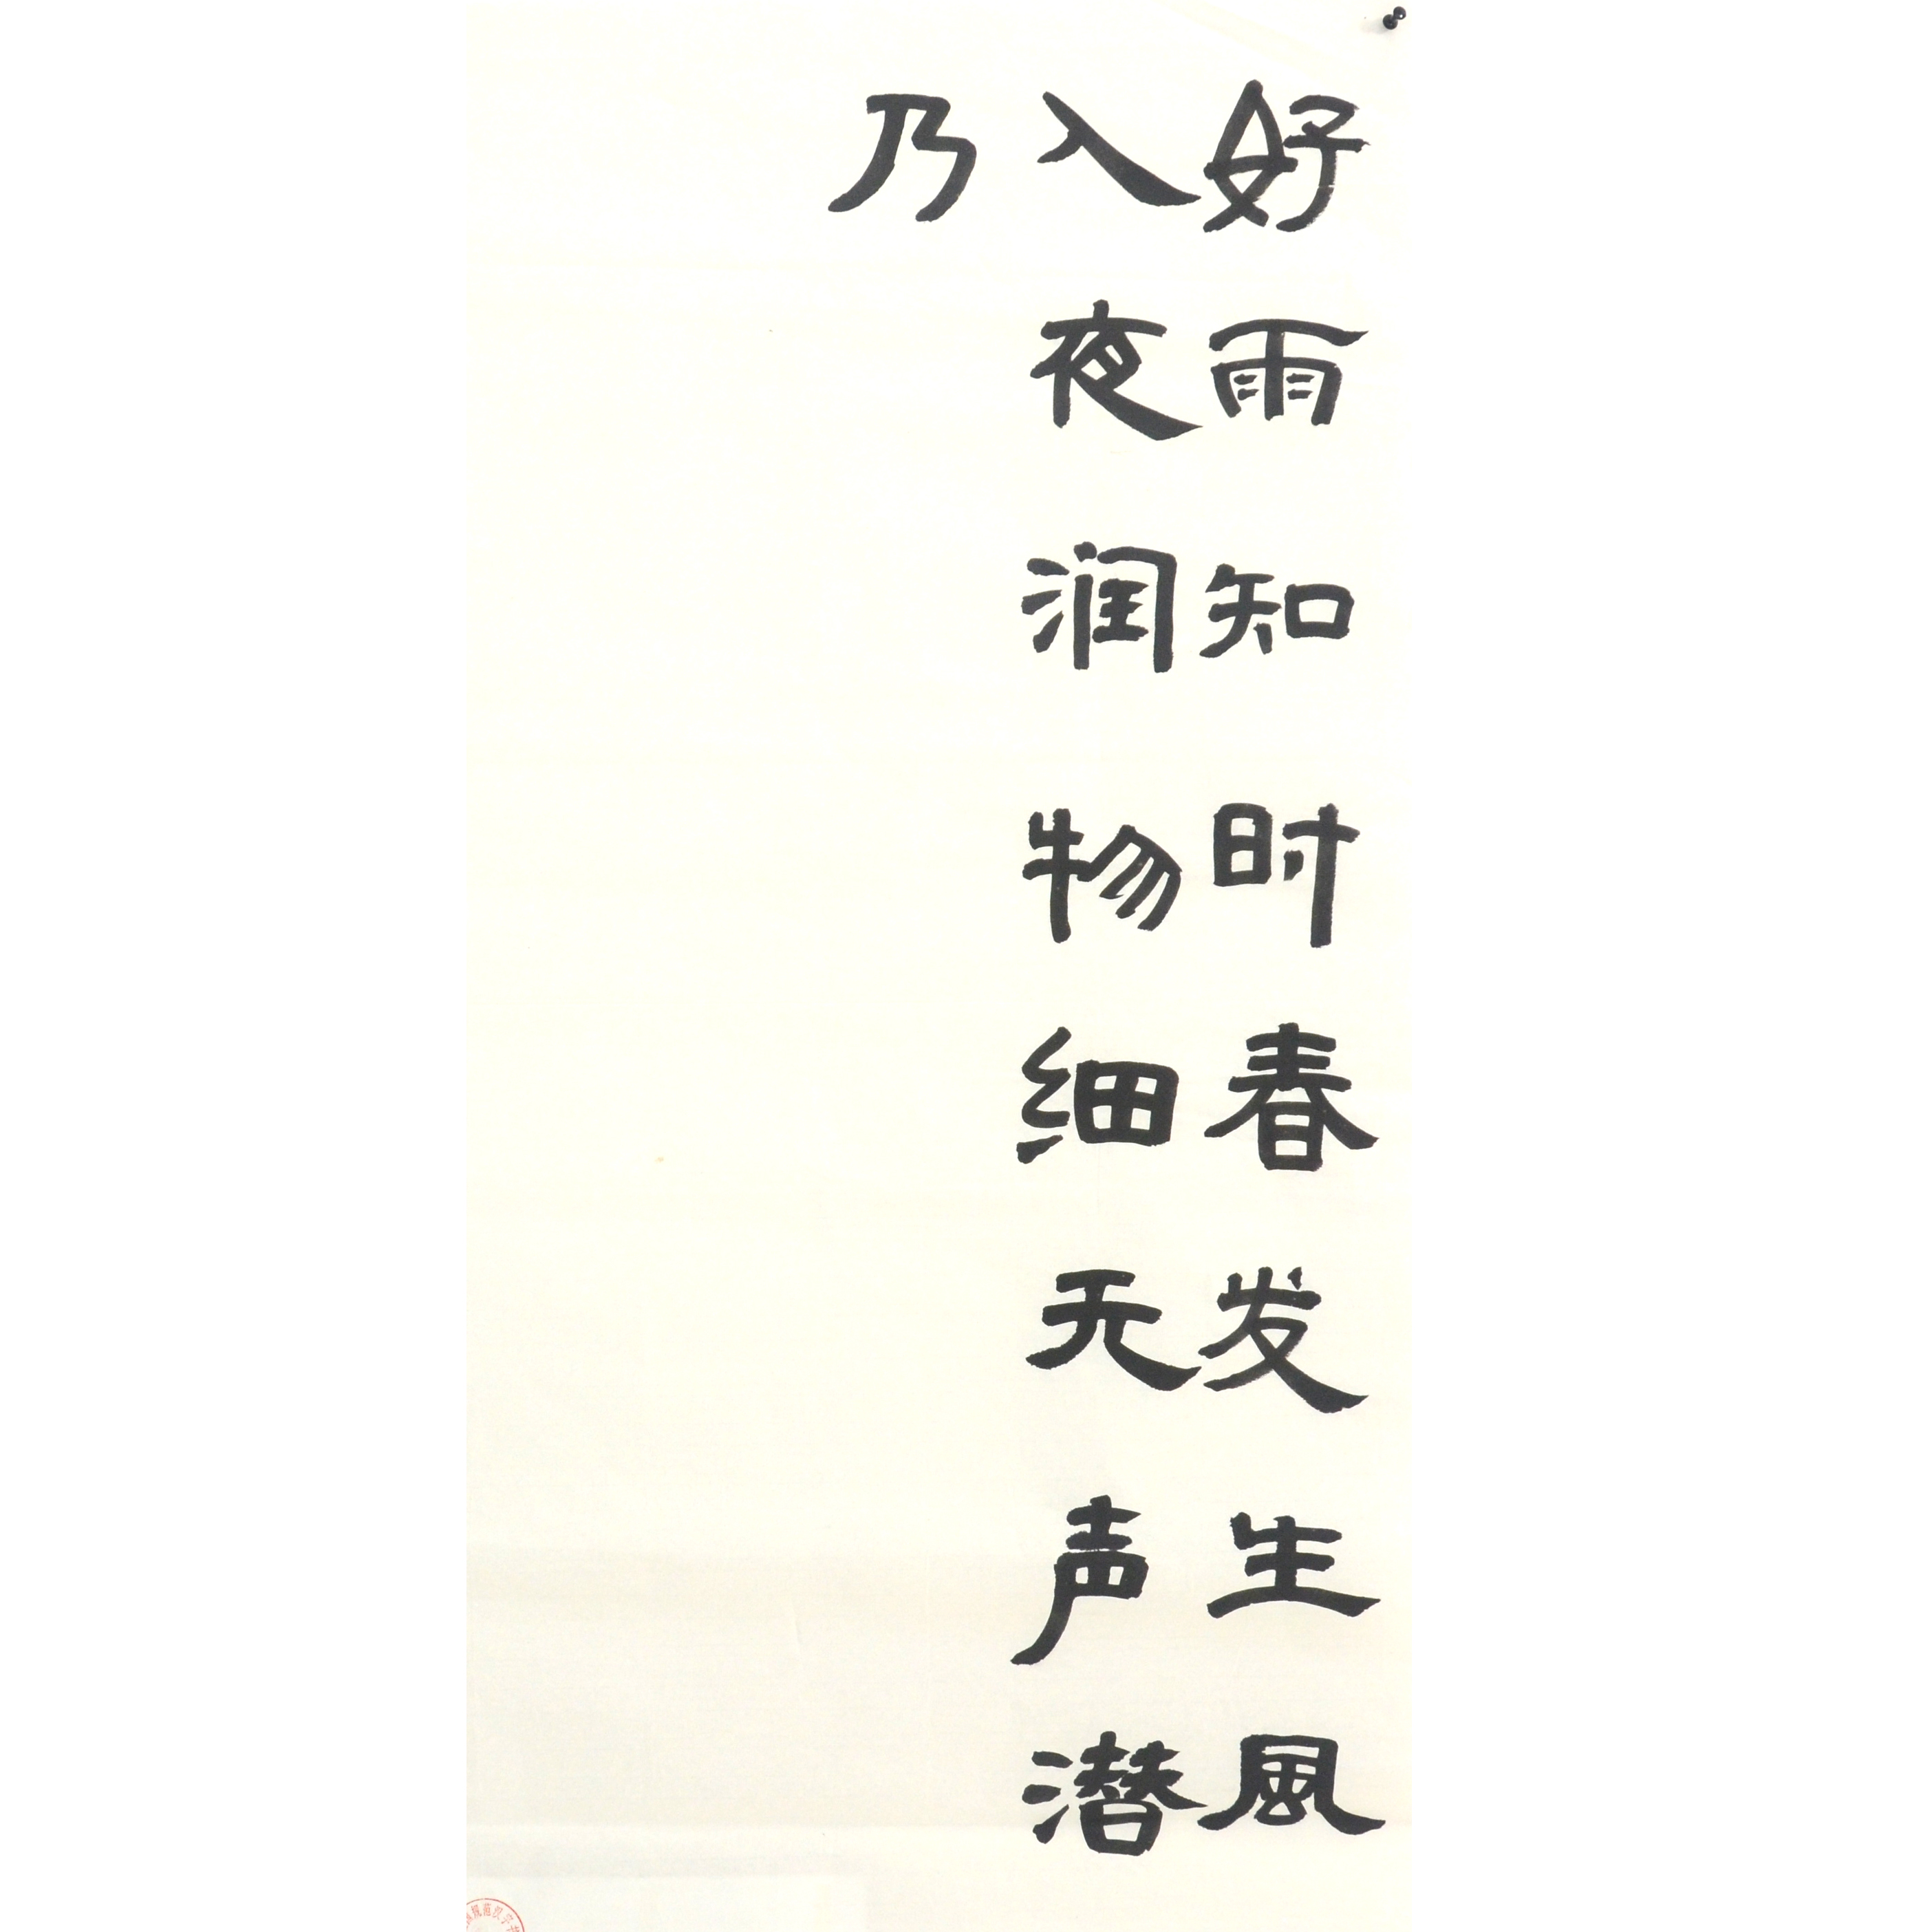 好雨知时春发生風
入夜润物细无声潜
乃
规范汉字